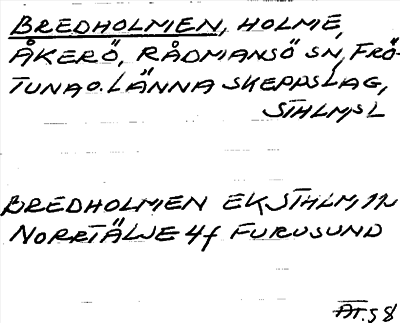 BREDHOLMEN, HOLME,
ÅKERÖ, RÅDMANSÖ SN, FRÖ-
TUNA O. LÄNNA SKEPPSLAG,
STHLMS L
BREDHOLMEN EK STHLM 12
NORRTÄLJE 4f FURUSUND
ÄT. 58